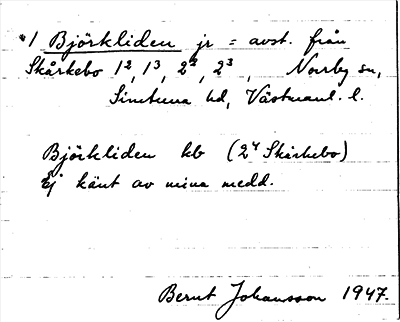 *1 Björkliden jr = avst. från
Skårkebo 1², 1³, 2², 2³, Norrby sn,
Simtuna hd, Västmanl. l.
Björkliden kb (2⁴ Skårkebo)
Ej känt av mina medd.
Bernt Johansson 1947.